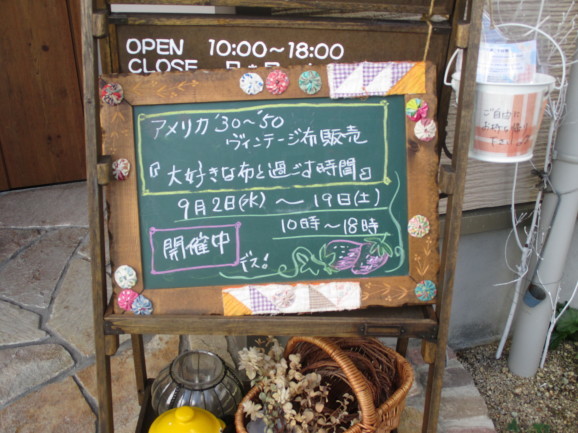 OPEN 10:00〜18:00
CLOSE
アメリカ'30〜'50
ヴィンテージ布販売
『大好きな布と過ごす時間』
9月2日(水)〜19日(土)
10時〜18時
開催中
デス!
ご自由に
お持ち帰り
下さい